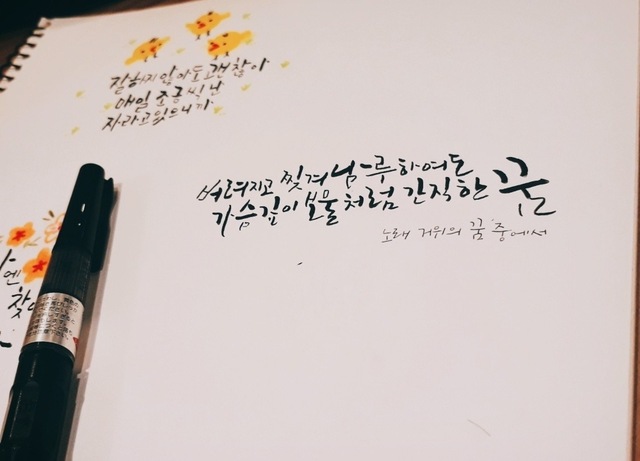 잘하지 않아도 괜찮아
매일 조금씩 난
자라고 있으니까
버려지고 찢겨 남루하여도
가슴 깊이 보물처럼 간직한 꿈
노래 거위의 꿈 중에서